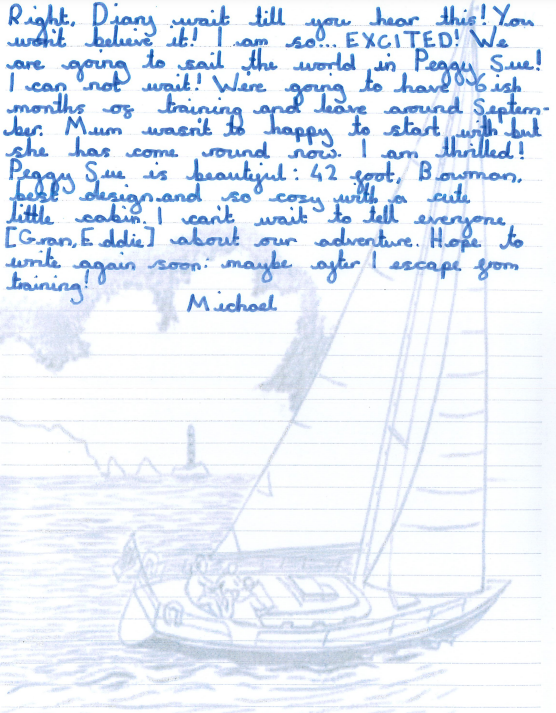 Right, Diary wait till you hear this! You
won't believe it! I am so... EXCITED! We
are going to sail the world in Peggy Sue!
I can not wait! We're going to have 6 ish
months of training and leave around Septem-
ber. Mum wasn't to happy to start with but
she has come round now. I am thrilled!
Peggy Sue is beautiful: 42 foot, Bowman,
best design.and so cosy with a cute
little cabin. I can't wait to tell everyone
[Gran, Eddie] about our adventure. Hope to
write again soon: maybe after I escape from
training!
Michael